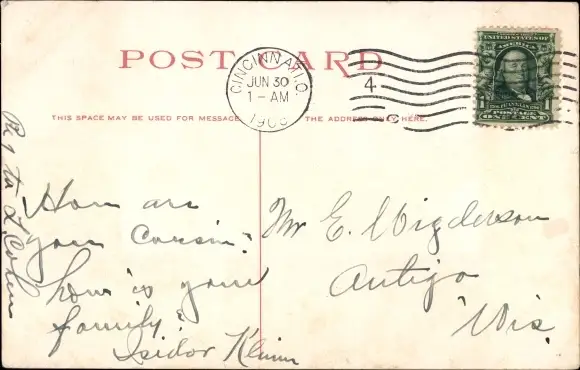 POST CARD
CINCINNATI, O.
JUN 30
1 - AM
4
UNITED STATES OF
AMERICA
1
1
POSTAGE
ONE CENT
THIS SPACE MAY BE USED FOR MESSAGE
THE ADDRESS ONLY HERE.
How are
your Cousin?
how is your
family?
Isidor
Mr E. Wigderson
Antigo
Wis.
to L. Cohen